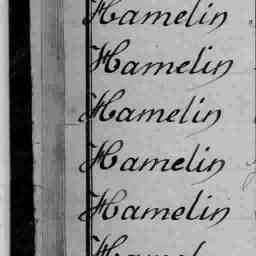 Hamelin
Hamelin
Hamelin
Hamelin
Hamelin